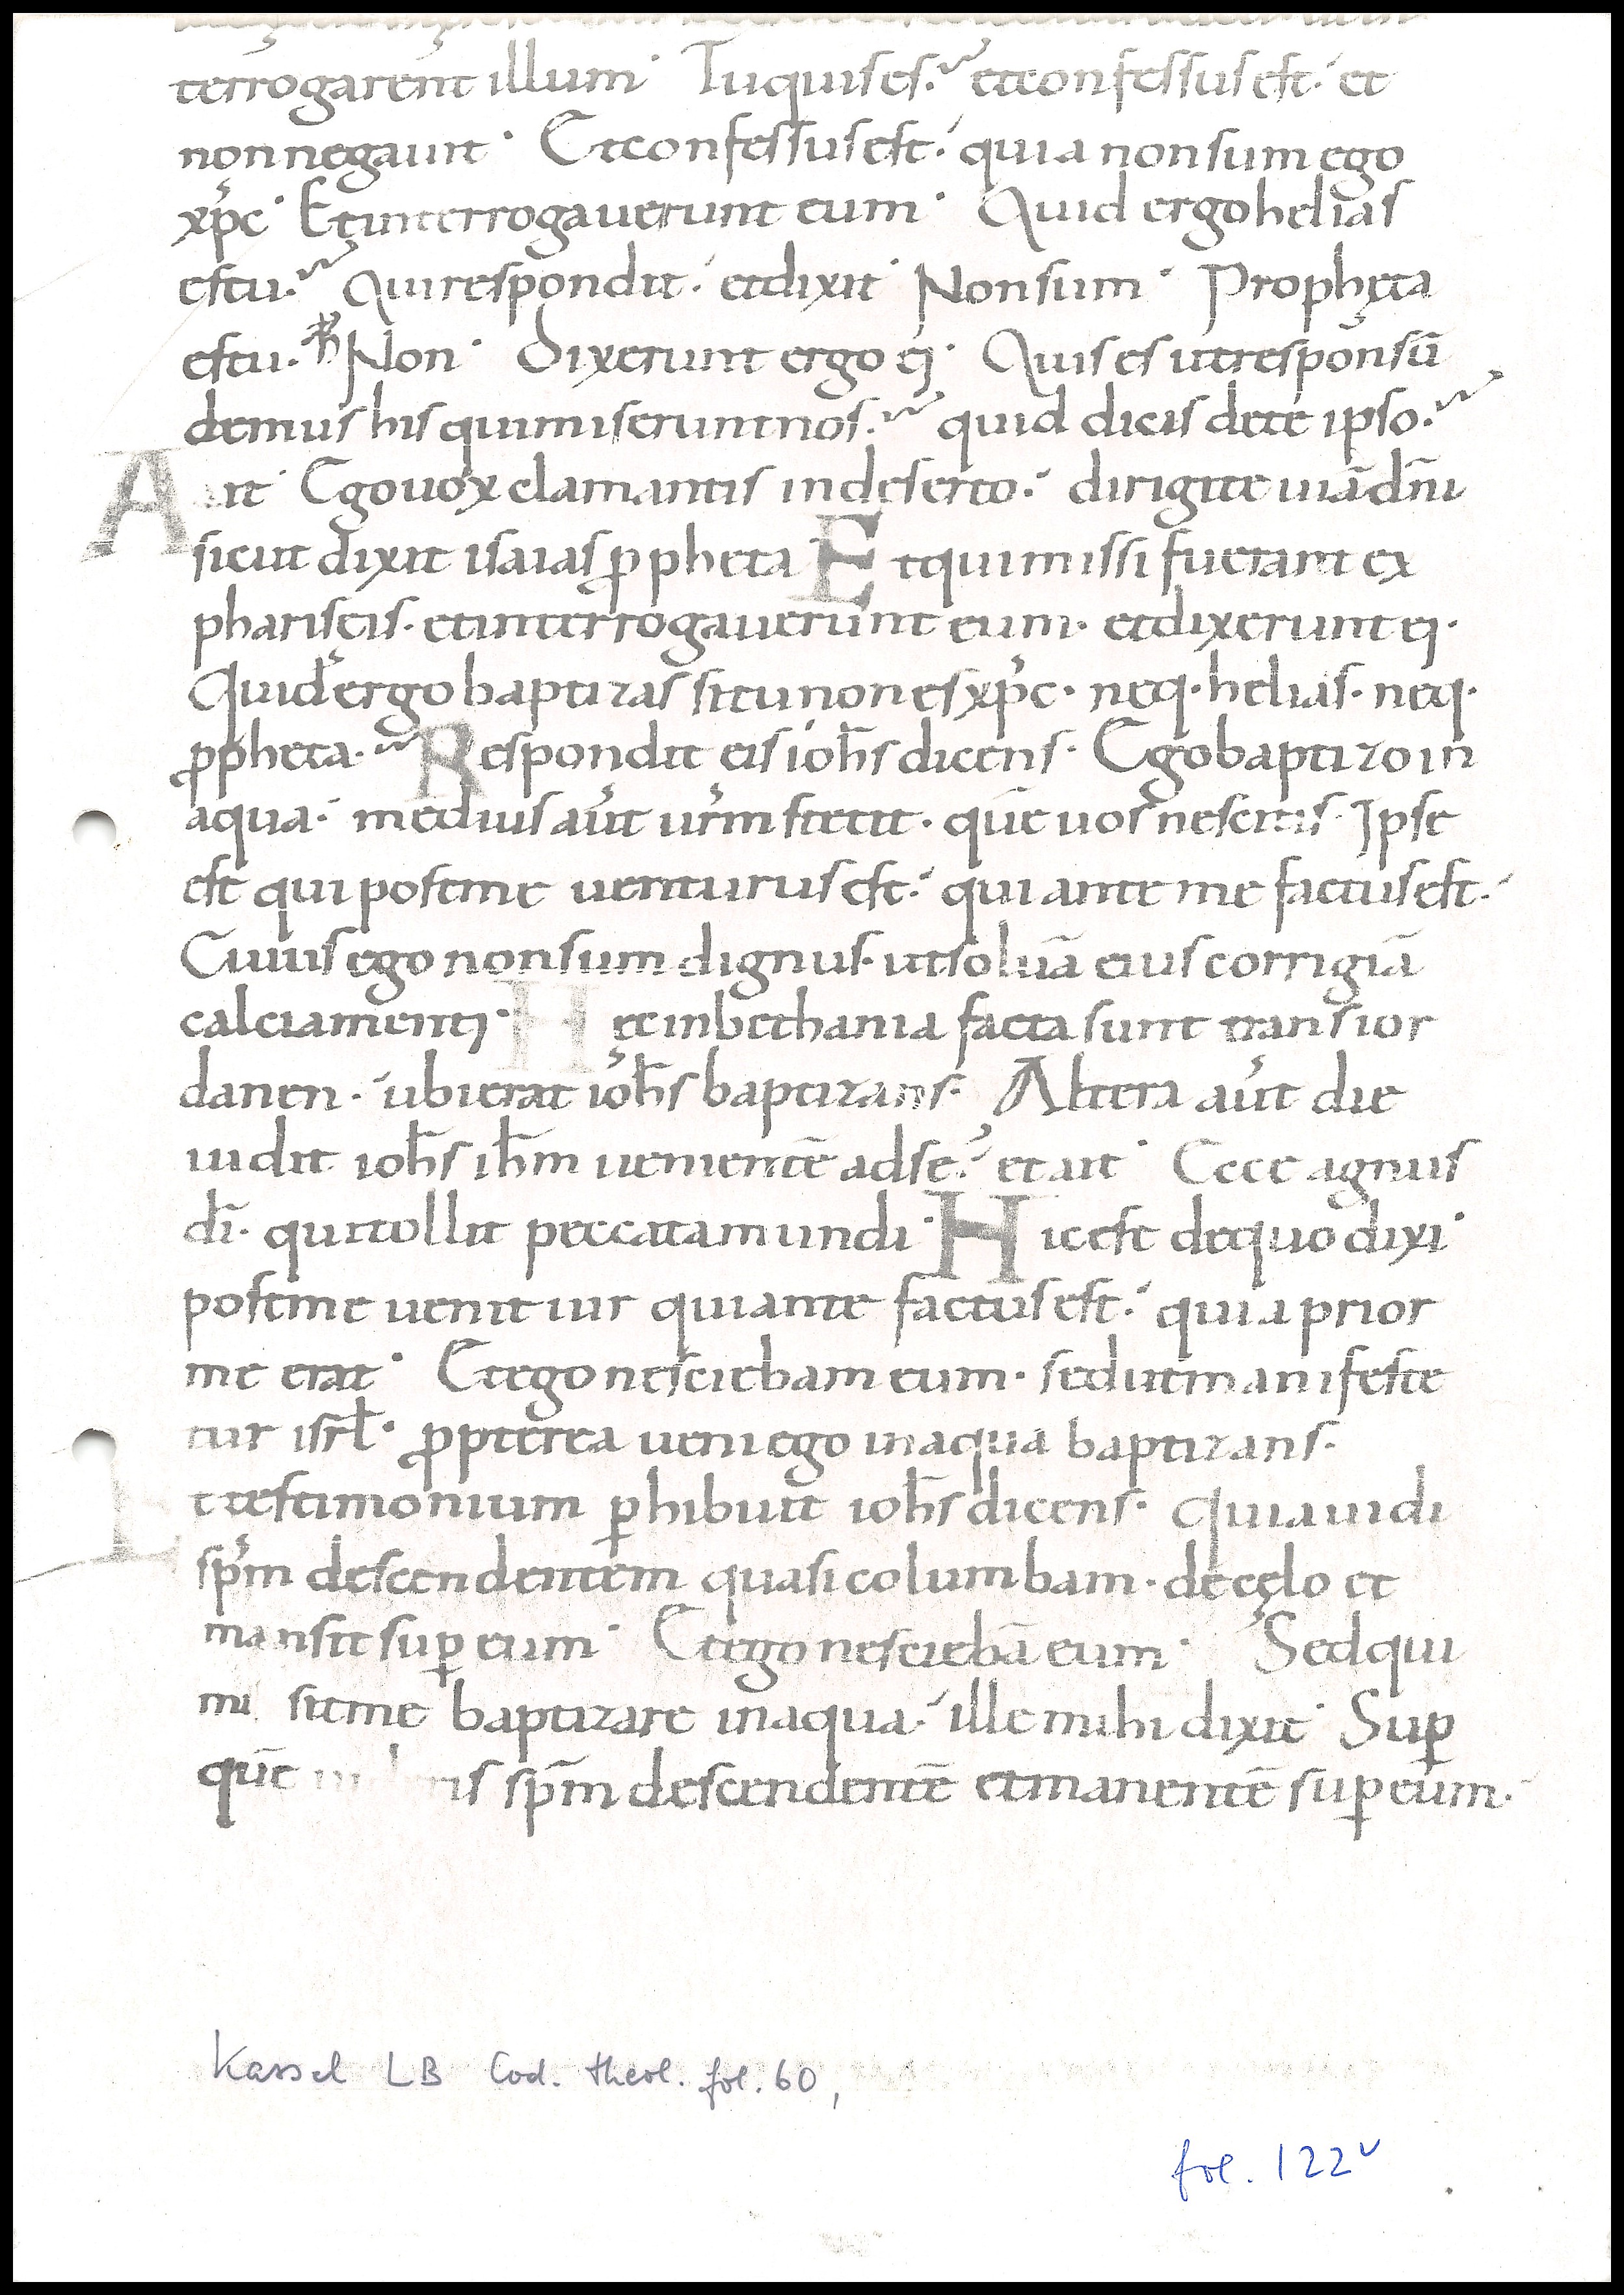 terrogarent illum· Tu quis es? et confessus est· et
non negauit· Et confessus est· quia non sum ego
xp̄c· Et interrogauerunt eum· Quid ergo helias
es tu? Qui respondit· et dixit· Non sum· Prophęta
es tu? Non· Dixerunt ergo ei· Quis es ut responsū
demus his qui miserunt nos? quid dicis de te ipso?
Ait· Ego uox clamantis in deserto· dirigite uiā dn̄i
sicut dixit isaias ꝓpheta Et qui missi fuerant ex
pharisęis· et interrogauerunt eum· et dixerunt ei·
Quid ergo baptizas si tu non es xp̄c· neq· helias· neq·
ꝓpheta? Respondit eis ioh̄s dicens· Ego baptizo in
aqua· medius aūt ur̄m stetit· quē uos nescitis· Ipse
est qui post me uenturus est· qui ante me factus est·
Cuius ego non sum dignus· ut soluā eius corrigiā
calciamenti· Hęc in bethania facta sunt trans ior
danen· ubi erat ioh̄s baptizans· Altera aūt die
uidit ioh̄s ih̄m uenientē ad se· et ait· Ecce agnus
dī· qui tollit peccatam undi· Hic est de quo dixi·
post me uenit uir qui ante factus est· quia prior
me erat· Et ego nesciebam eum· sed ut manifeste
tur isrł· ꝓpterea ueni ego in aqua baptizans·
Et testimonium ꝑhibuit ioh̄s dicens· Quia uidi
sp̄m descendentem quasi columbam· de cęlo et
mansit suꝑ eum· Et ego nesciebā eum· Sed qui
mi sit me baptizare in aqua· ille mihi dixit· Suꝑ
quē is sp̄m descendentē et manentē suꝑ eum·
Kassel LB Cod. theol. fol. 60,
fol. 122v